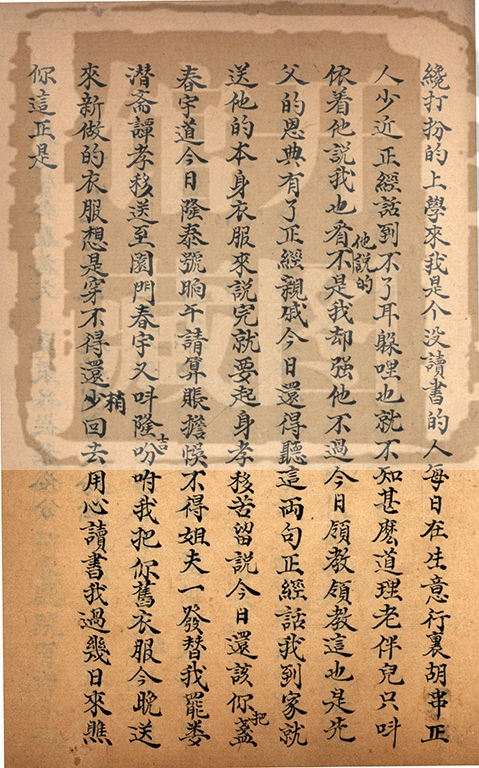 纔打扮的上學來我是个没讀書的人每日在生意行裏胡串正
人少近正經話到不了耳躲哩也就不知甚麽道理老伴兒只呌
依着他說我也看他說的不是我却强他不過今日領教領教這也是先
父的恩典有了正經親戚今日還得聽這両句正經話我到家就
送他的本身衣服來說完就要起身孝移苦留說今日還該你把盞
春宇道今日隆泰號晌午請算賬擔悞不得姐夫一發替我罷婁
潜斋譚孝移送至園門春宇又呌隆吉吩咐我把你舊衣服今晩送
來新做的衣服想是穿不得還少稍回去用心讀書我過幾日來瞧
你這正是